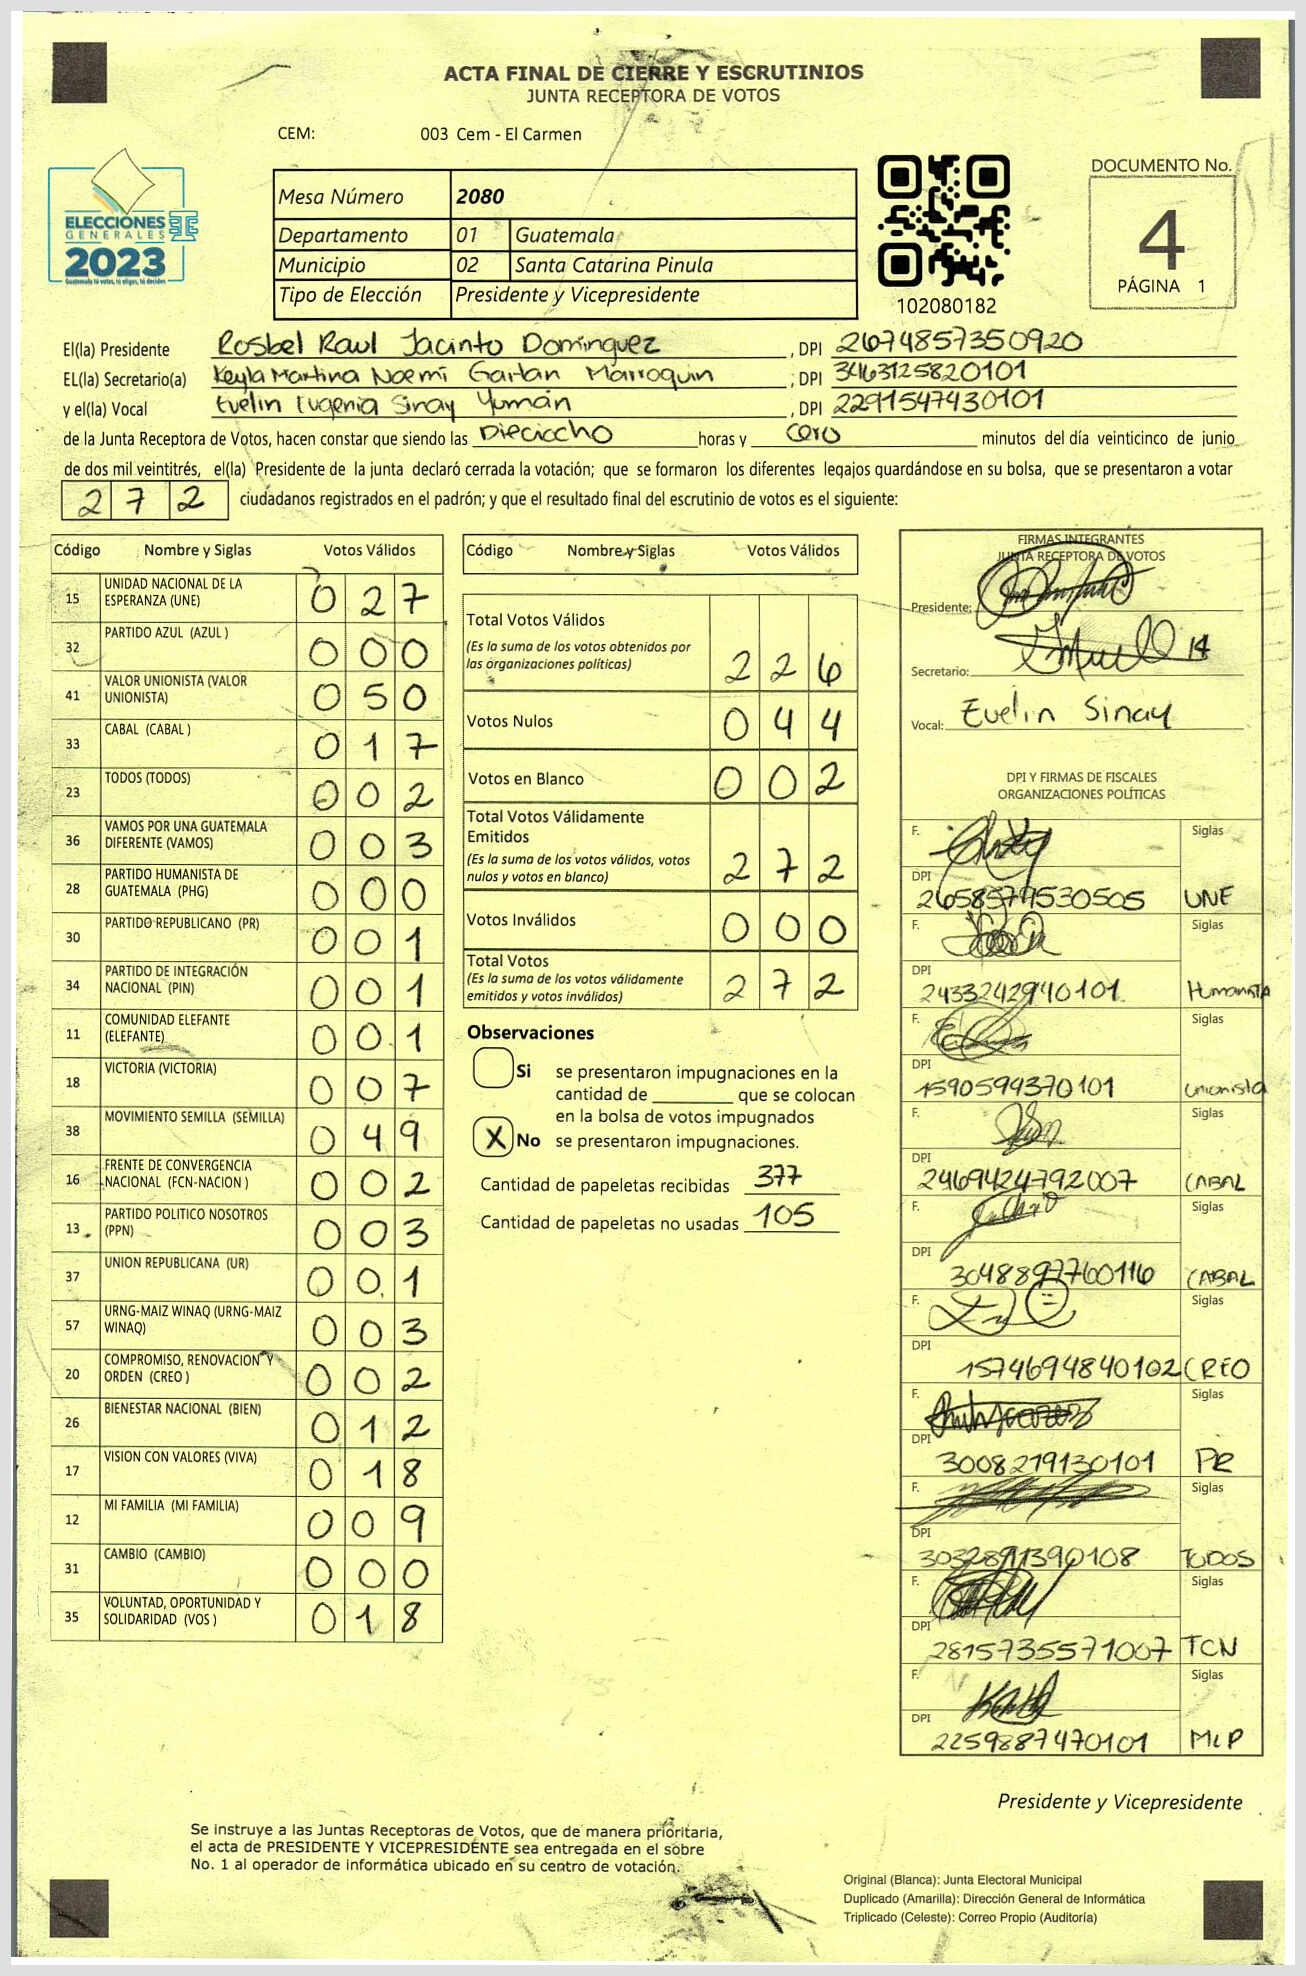 ACTA FINAL DE CIERRE Y ESCRUTINIOS
JUNTA RECEPTORA DE VOTOS
CEM: 003 Cem - El Carmen
ELECCIONES
GENERALES
2023
Guatemala tú votas, tú eliges, tú decides
Mesa Número 2080
Departamento 01 Guatemala
Municipio 02 Santa Catarina Pinula
Tipo de Elección Presidente y Vicepresidente
102080182
DOCUMENTO No.
4
PÁGINA 1
El(la) Presidente Rosbel Raul Jacinto Domínguez, DPI 2674857350920
EL(la) Secretario(a) Keyla Martina Noemí Gaitan Marroquin, DPI 3463125820101
y el(la) Vocal Evelin Eugenia Sinay Yumán, DPI 2291547430101
de la Junta Receptora de Votos, hacen constar que siendo las Dieciocho horas y cero minutos del día veinticinco de junio
de dos mil veintitrés, el(la) Presidente de la junta declaró cerrada la votación; que se formaron los diferentes legajos guardándose en su bolsa, que se presentaron a votar
272 ciudadanos registrados en el padrón; y que el resultado final del escrutinio de votos es el siguiente:
Código Nombre y Siglas Votos Válidos
15 UNIDAD NACIONAL DE LA ESPERANZA (UNE) 027
32 PARTIDO AZUL (AZUL ) 000
41 VALOR UNIONISTA (VALOR UNIONISTA) 050
33 CABAL (CABAL ) 017
23 TODOS (TODOS) 002
36 VAMOS POR UNA GUATEMALA DIFERENTE (VAMOS) 003
28 PARTIDO HUMANISTA DE GUATEMALA (PHG) 000
30 PARTIDO REPUBLICANO (PR) 001
34 PARTIDO DE INTEGRACIÓN NACIONAL (PIN) 001
11 COMUNIDAD ELEFANTE (ELEFANTE) 001
18 VICTORIA (VICTORIA) 007
38 MOVIMIENTO SEMILLA (SEMILLA) 049
16 FRENTE DE CONVERGENCIA NACIONAL (FCN-NACION ) 002
13 PARTIDO POLITICO NOSOTROS (PPN) 003
37 UNION REPUBLICANA (UR) 001
57 URNG-MAIZ WINAQ (URNG-MAIZ WINAQ) 003
20 COMPROMISO, RENOVACION Y ORDEN (CREO ) 002
26 BIENESTAR NACIONAL (BIEN) 012
17 VISION CON VALORES (VIVA) 018
12 MI FAMILIA (MI FAMILIA) 009
31 CAMBIO (CAMBIO) 000
35 VOLUNTAD, OPORTUNIDAD Y SOLIDARIDAD (VOS ) 018
Código Nombre y Siglas Votos Válidos
Total Votos Válidos
(Es la suma de los votos obtenidos por
las organizaciones políticas) 226
Votos Nulos 044
Votos en Blanco 002
Total Votos Válidamente
Emitidos
(Es la suma de los votos válidos, votos
nulos y votos en blanco) 272
Votos Inválidos 000
Total Votos
(Es la suma de los votos válidamente
emitidos y votos inválidos) 272
Observaciones
Si se presentaron impugnaciones en la
cantidad de ________ que se colocan
en la bolsa de votos impugnados
X No se presentaron impugnaciones.
Cantidad de papeletas recibidas 377
Cantidad de papeletas no usadas 105
FIRMAS INTEGRANTES
JUNTA RECEPTORA DE VOTOS
Presidente:
Secretario:
Vocal: Evelin Sinay
DPI Y FIRMAS DE FISCALES
ORGANIZACIONES POLÍTICAS
F. Siglas
DPI 2658579530505 UNE
F. Siglas
DPI 2433242940101 Humanista
F. Siglas
DPI 1590594370101 Unionista
F. Siglas
DPI 2469424792007 CABAL
F. Siglas
DPI 3048897760116 CABAL
F. Siglas
DPI 1574694840102 CREO
F. Siglas
DPI 3008219130101 PR
F. Siglas
DPI 3032891390108 TODOS
F. Siglas
DPI 2815735571007 TCN
F. Siglas
DPI 2259887470101 MLP
Presidente y Vicepresidente
Se instruye a las Juntas Receptoras de Votos, que de manera prioritaria,
el acta de PRESIDENTE Y VICEPRESIDENTE sea entregada en el sobre
No. 1 al operador de informática ubicado en su centro de votación.
Original (Blanca): Junta Electoral Municipal
Duplicado (Amarilla): Dirección General de Informática
Triplicado (Celeste): Correo Propio (Auditoría)